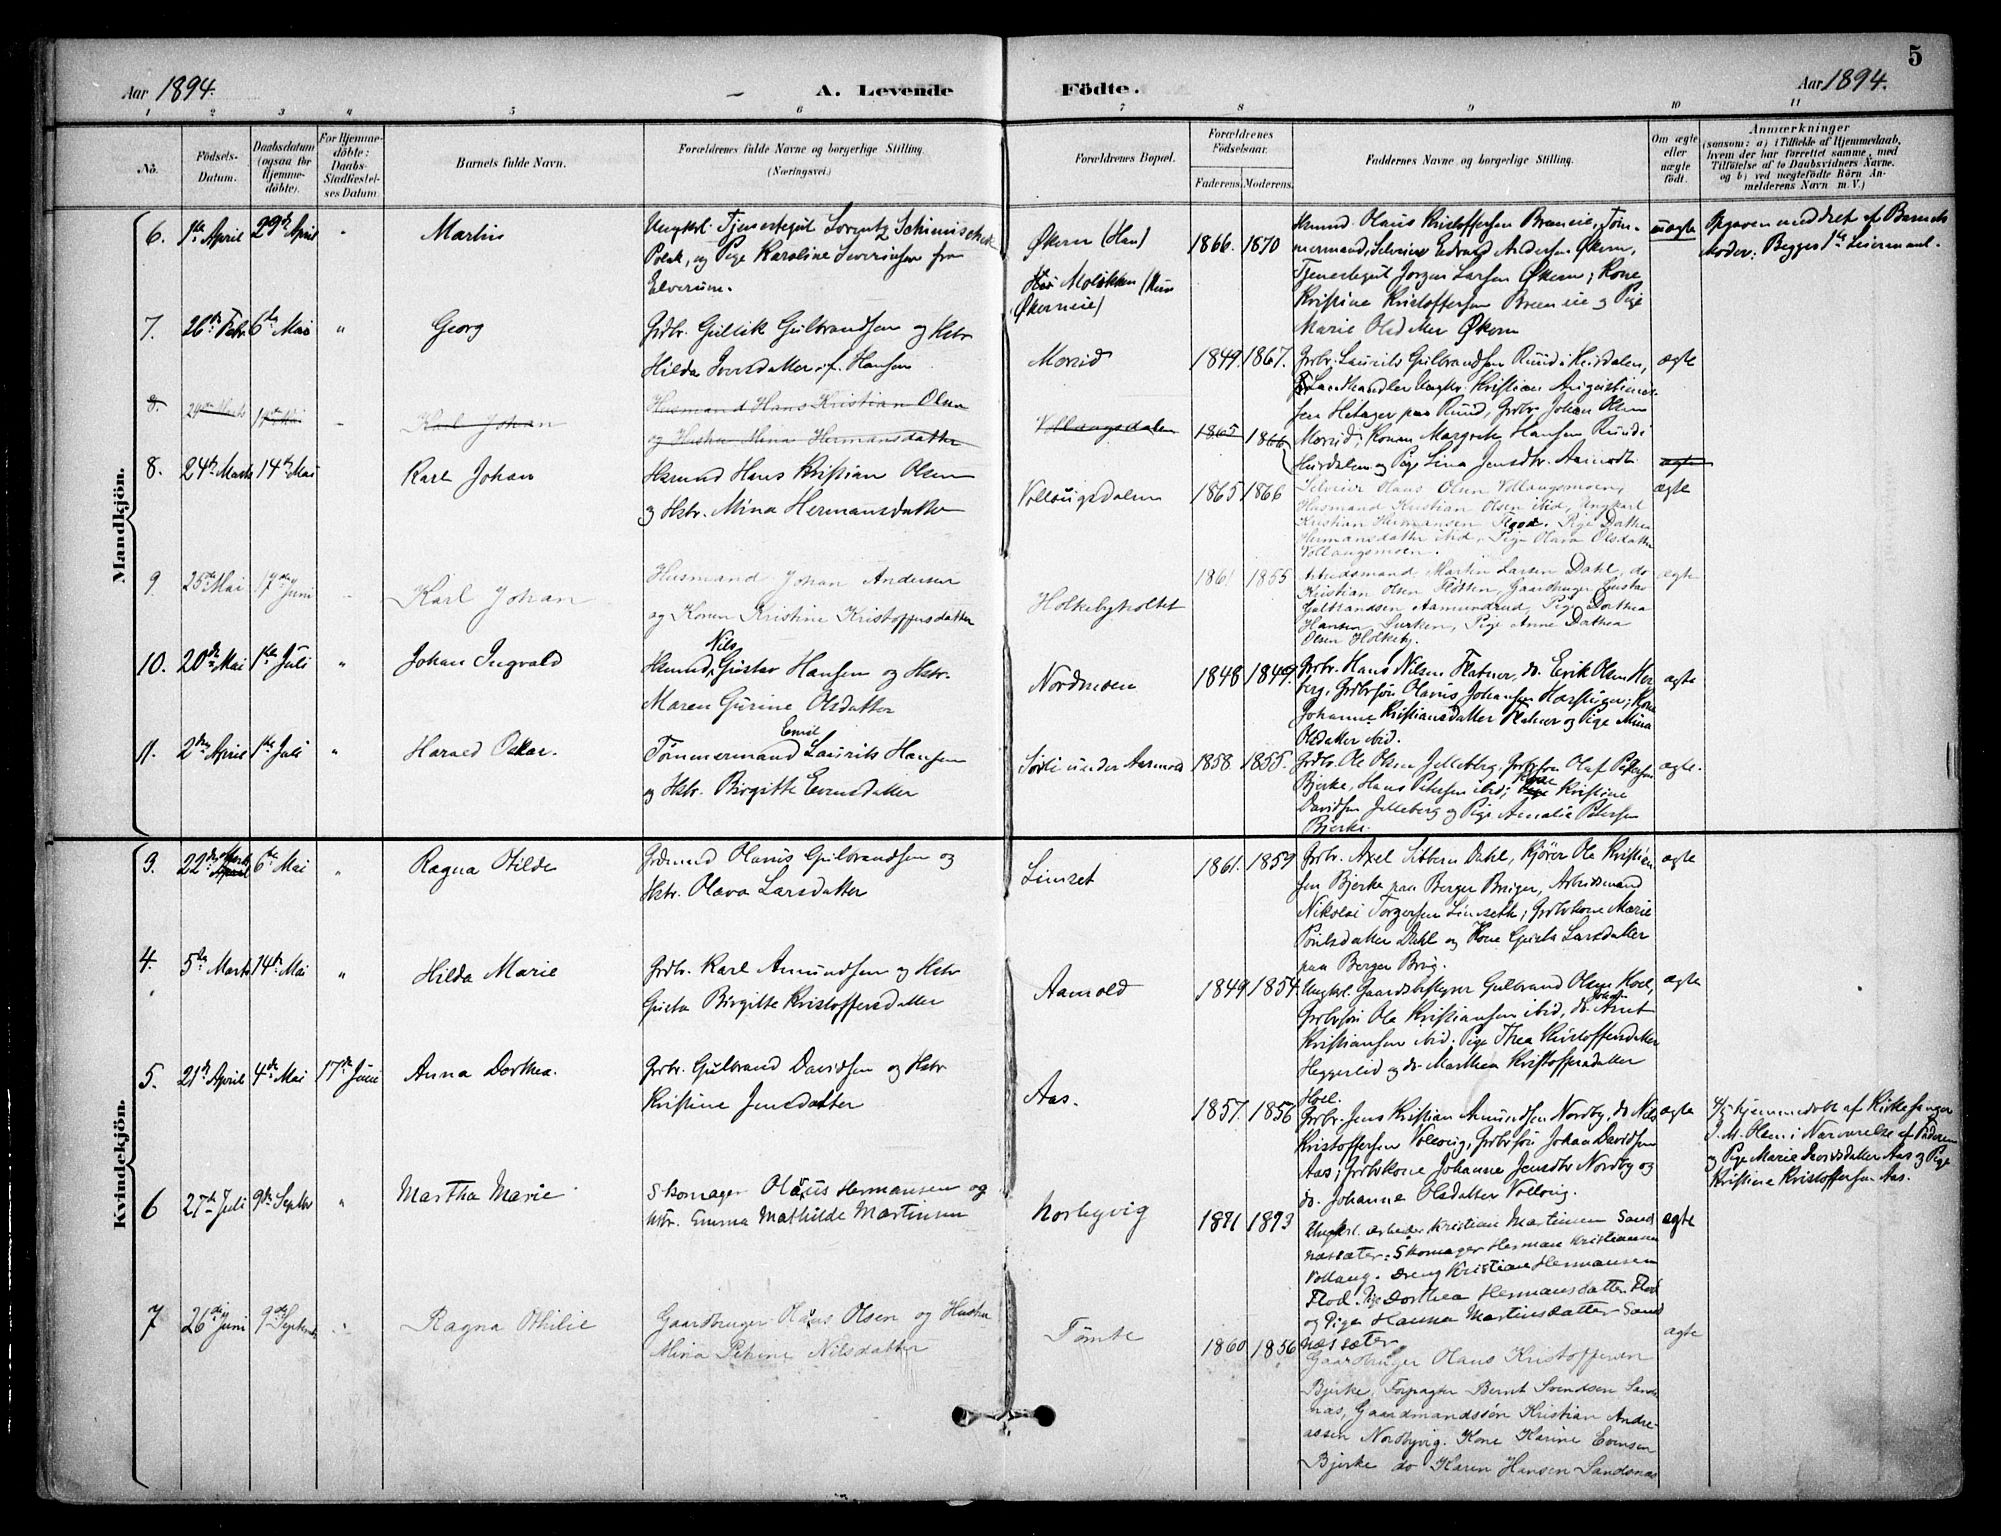 5
Aar 1894.
A. Levende Födte.
Aar 1894.
1 2 3 4 5 6 7 8 9 10 11
No.
Födsels-Datum.
Daabsdatum (ogsaa for Hjemme-döbte).
For Hjemme-döbte: Daabs Stadfæstel-ses Datum.
Barnets fulde Navn.
Forældrenes fulde Navne og borgerlige Stilling. (Næringsvei.)
Forældrenes Bopæl.
Forældrenes Födselsaar.
Faderens. Moderens.
Faddernes Navne og borgerlige Stilling.
Om ægte eller uægte födt.
Anmærkninger
(saasom: a) i Tilfælde af Hjemmedaab, hvem der har forrettet samme, med Tilföielse af to Daabsvidners Navne, og b) ved uægtefödte Börn An-melderens Navn m. V.)
Mandkjön.
6. 1ste April 29de April " Martin
Ungkl. Tjenestegut Lorentz
Polak, og Pige Karoline Severinsen fra
Elverum.
Økern (Han)
Molikken (Hun
Økerneie)
1866. 1870
Husmd. Olaus Kristoffersen Brænneie, Tøm-
mermand, Selveier Edvard Andersen Økern,
Tjenestegut Jørgen Larsen Økern; Kone
Kristine Kristoffersen Bræneie og Pige
Marie Olsdatter Økern
uægte
Opgaven meddelt af Barnets
Moder. Begges 1ste Leiermaal.
7. 26de Febr. 6te Mai " Georg
Grdbr. Gullik Gulbrandsen og Hstr
Hilda Iversdatter f. Hansen
Morud
1849. 1867.
Grdbr. Laurits Gulbrandsen Ruud i Hurdalen,
Landhandler Ungkr. Kristian Augustinus-
sen Hitager paa Ruud, Grdbr. Johan Olsen
Morud; Konen Margrethe Hansen Ruud i
Hurdalen og Pige Lina Jensdtr. Aamodt
ægte
8. 24de Marts 14de Mai - Karl Johan
Husmand Hans Kristian Olsen
og Hustru Mina Hermansdatter
Vollaugsdalen
1865 1866
ægte
8. 24de Marts 14de Mai Karl Johan
Hsmnd Hans Kristian Olsen
og Hstr. Mina Hermansdatter
Vollaugsdalen
1865 1866
Selveier Hans Olsen Vollaugsmoen,
Husmand Kristian Olsen ibid, Ungkarl
Kristian Hermansen Flood. Pige Dathea
Hermansdatter ibid, Pige Olava Olsdatter
Vollaugsmoen.
ægte
9 25de Mai 17de Juni - Karl Johan
Husmand Johan Andersen
og Konen Kristine Kristoffersdatter
Holkebyholtet
1861. 1855
Arbeidsmand Martin Larsen Dahl, do
Kristian Olsen Fløtten, Gaardbruger Gustav
Gulbrandsen Aamundrud, Pige Dorthea
Hansen, Pige Anne Dathea
Olsen Holkeby.
ægte
10. 20de Mai 1ste Juli " Johan Ingvald
Nils
Hsmnd. Gustav Hansen og Hstr.
Maren Gurine Olsdatter
Nordmoen
1848 1849.
Grdbr. Hans Nilsen Flatner, do. Erik Olsen Her-
berg, Grdbrsøn Olavus Johansen; Kone
Johanne Kristiansdatter Flatner og Pige Mina
Olsdatter ibid.
ægte
11. 2den April 1ste Juli " Harald Oskar.
Emil
Tømmermand Laurits Hansen
og Hstr. Birgitte Evensdatter
Sørli under Aamold
1858 1855.
Grdbr. Ole Olsen Jelleberg, Grdbrsøn Olaf Petersen
Bjerke, Hans Petersen ibid; Kone Kristine
Davidsen Jelleberg og Pige Amalie Petersen
Bjerke.
ægte.
Kvindekjön.
3. 22de Marts April 6te Mai " Ragna Otilde
Grdmnd Olaus Gulbrandsen og
Hstr. Olava Larsdatter
Linset
1861. 1859
Grdbr. Axel Sibbern Dahl, Kjører Ole Kristian-
sen Bjerke paa Berger Brug, Arbeidsmand
Nikolai Torgersen Linseth; Grdbrkone Marie
Poulsdatter Dahl og Kone Gusta Larsdatter
paa Berger Brug.
ægte
4. 5te Marts 14de Mai " Hilda Marie
Grdbr. Karl Amundsen og Hstr
Gusta Birgitte Kristoffersdatter
Aamold
1849 1854.
Ungkrl. Gaardsbestyrer Gulbrand Olsen Hoel,
Grdbrsøn Ole Kristiansen ibid, do. Johan Arnt
Kristiansen ibid. Pige Thea Kristoffersdatter
Heggerlid og do. Marthea Kristoffersdatter
Hoel.
ægte
5. 21de April 4de Mai 17de Juni Anna Dorthea.
Grdbr. Gulbrand Davidsen og Hstr
Kristine Jensdatter
Aas.
1857. 1856
Grdbr. Jens Kristian Amundsen Nordby, do Nils
Kristoffersen Vollaug, Grdbrsøn Johan Davidsen
Aas; Grdbrkone Johanne Jensdtr Nordby og
do. Johanne Olsdatter Vollaug.
ægte
4/5 hjemmedøbt af Kirkesanger
J. M. Olsen i Nærværelse af Faderen
og Pige Marie Davidsdatter Aas og Pige
Kristine Kristoffersen Aas.
6 27de Juli 9de Septbr " Martha Marie
Skomager Olaus Hermansen og
Hstr. Emma Mathilde Martinsen
Norbyvig
1871 1873
Ungkrl. arbeider Kristian Martinsen Sand
næssæter. Skomager Herman Kristiansen
Vollaug. Dreng Kristian Hermansen
Flod. Pige Dorthea Hermansdatter Flod
og Pige Hanna Martinsdatter Sand
næssæter
ægte
7 26de Juni 9de Septembr " Ragna Othilie
Gaardbruger Olaus Olsen og Hustru
Mina Petrine Nilsdatter
Tømte
1860 1856
Gaardbruger Olaus Kristoffersen
Bjerke, Forpagter Bernt Svendsen Sand-
næs, Gaardmandssøn Kristian Andre-
assen Nordbyvig. Kone Karine Evensen
Bjerke do Karen Hansen Sandsnæs
ægte